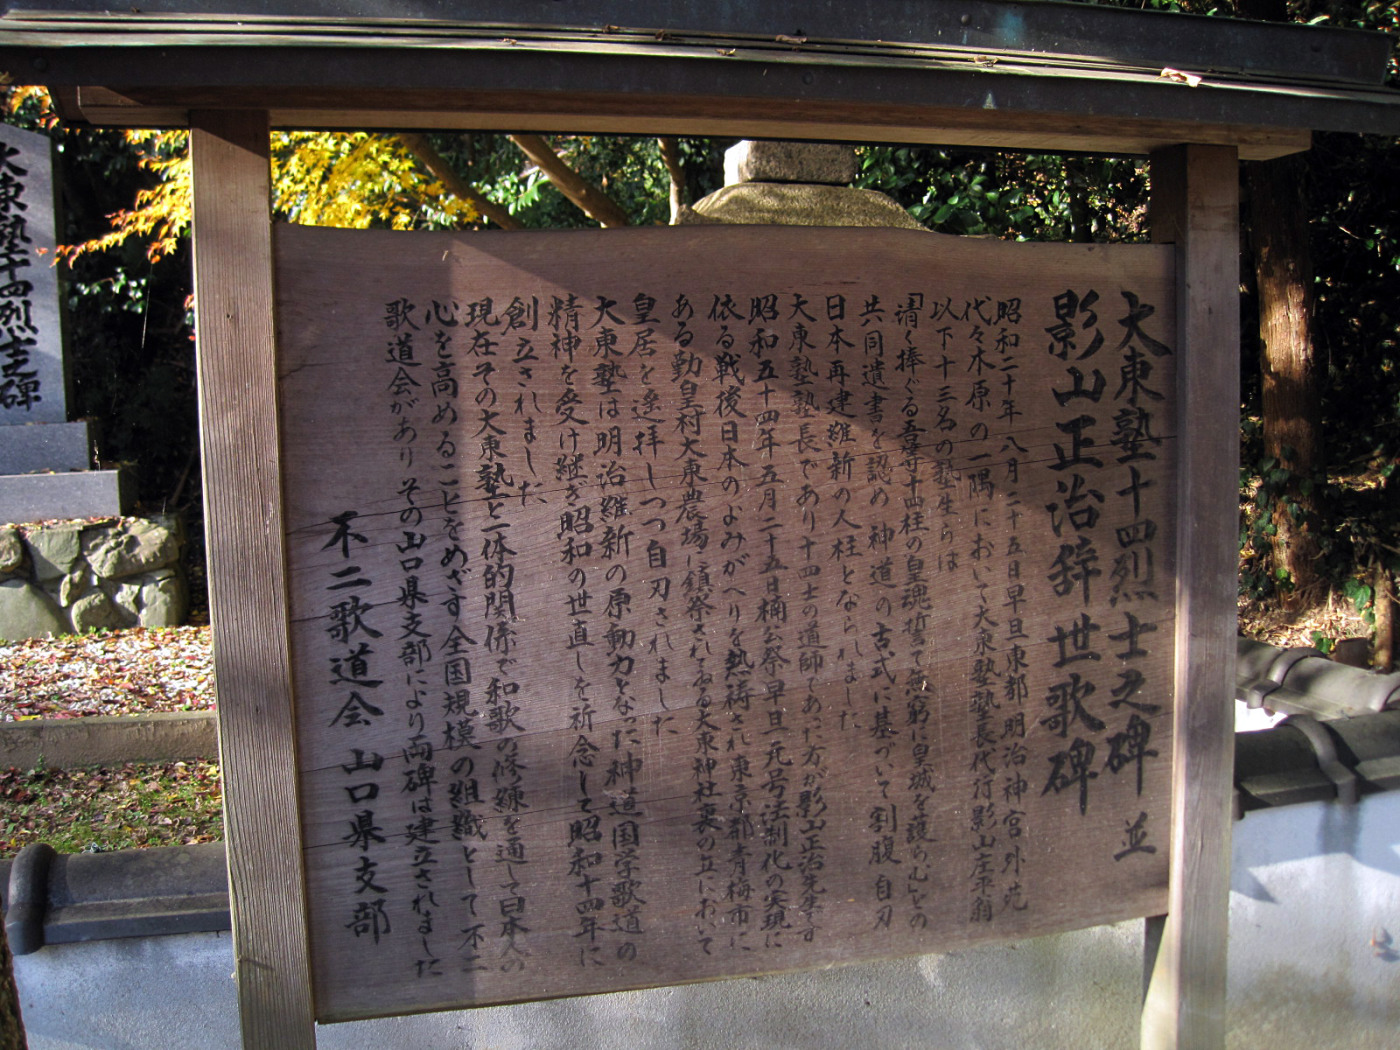 大東塾十四烈士之碑 並
影山正治辞世歌碑
昭和二十年 八月二十五日早旦東都明治神宮外苑
代々木原の一隅において大東塾塾長代行影山庄平翁
以下十三名の塾生らは
「清く捧ぐる吾等十四柱の皇魂誓て無窮に皇城を護らむ」との
共同遺書を認め 神道の古式に基づいて 割腹 自刃
日本再建維新の人柱となられました
大東塾塾長であり十四士の道師であった方が影山正治先生です
昭和五十四年五月二十五日楠公祭早旦 元号法制化の実現に
依る戦後日本のよみがへりを熱祷され東京都青梅市に
ある勤皇村大東農場に鎮祭されゐる大東神社裏の丘において
皇居を遙拝しつつ自刃されました
大東塾は明治維新の原動力となった神道国学歌道の
精神を受け継ぎ昭和の世直しを祈念して昭和十四年に
創立されました
現在その大東塾と一体的関係で和歌の修練を通して日本人の
心を高めることをめざす全国規模の組織として不二
歌道会があり その山口県支部により両碑は建立されました
不二歌道会 山口県支部
大東塾十四烈士之碑